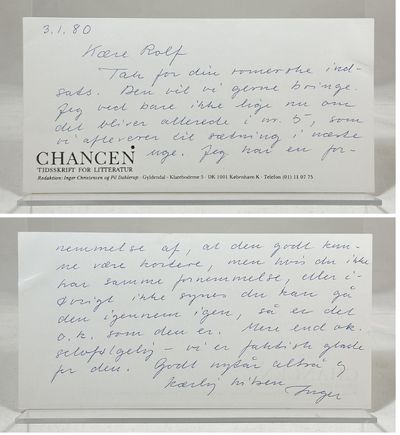 3.1.80
Kære Rolf
Tak for din romerske ind-
sats. Den vil vi gerne bringe.
Jeg ved bare ikke lige nu om
det bliver allerede i nr. 5, som
vi afleverer til sætning i næste
uge. Jeg har en for-
CHANCEN
TIDSSKRIFT FOR LITTERATUR
Redaktion: Inger Christensen og Pil Dahlerup · Gyldendal · Klareboderne 3 · DK 1001 København K · Telefon (01) 11 07 75
nemmelse af, at den godt kun-
ne være kortere, men hvis du ikke
har samme fornemmelse, eller i-
øvrigt ikke synes du kan gå
den igennem igen, så er det
o.k. som den er. Mere end ok.
selvfølgelig – vi er faktisk glade
for den. Godt nytår altså og
kærlig hilsen
Inger